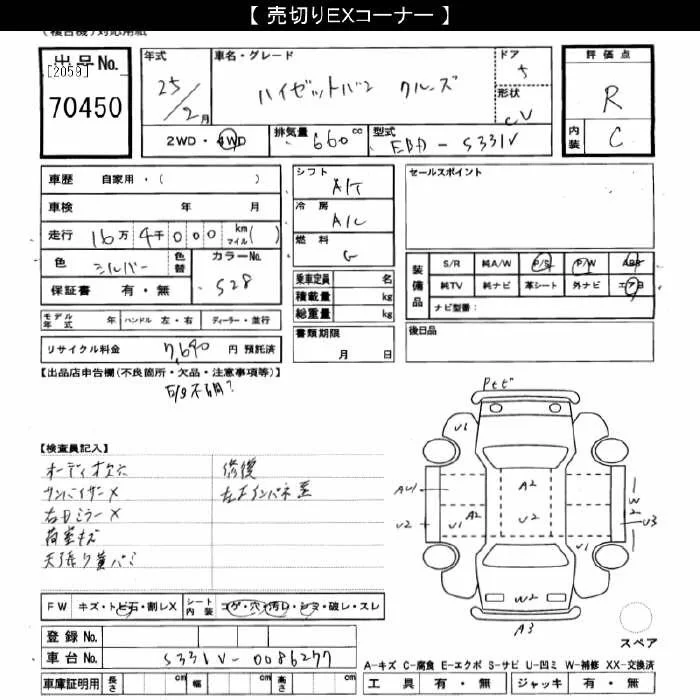 【 売切りEXコーナー 】
(複合機)対応用紙
出品No.
[2059]
70450
年式
25/2月
車名・グレード
ハイゼットバン クルーズ
ドア
5
形状
CV
評価点
R
内装
C
2WD・4WD
排気量 660cc
型式 EBD-S331V
車歴 自家用・( )
車検 年 月
走行 16万 4千000 km マイル( )
色 シルバー
色替
カラーNo. S28
保証書 有・無
シフト A/T
冷房 A/C
燃料 G
乗車定員 名
積載量 kg
総重量 kg
セールスポイント
装備品
S/R 純A/W P/S P/W ABS
純TV 純ナビ 革シート 外ナビ エアB
ナビ型番:
モデル年式 年 ハンドル 左・右 ディーラー・並行
書類期限
月 日
後日品
リサイクル料金 7,690 円 預託済
【出品店申告欄(不良箇所・欠品・注意事項等)】
【検査員記入】
オーディオ欠 修復
サンバイザーX
右Dミラー X
荷室キズ
天張り
U1 A2 U2 U1 A2 U2 U1 U1 W2 U3 W2 A3
FW キズ・トビ石・割レX シート内装 コゲ・穴・汚レ・シミ・破レ・スレ
スペア
登録 No.
車台 No. S331V-0086277
車庫証明用 長さ cm 幅 cm 高さ cm
A-キズ C-腐食 E-エクボ S-サビ U-凹ミ W-補修 XX-交換済
工具 有・無 ジャッキ 有・無